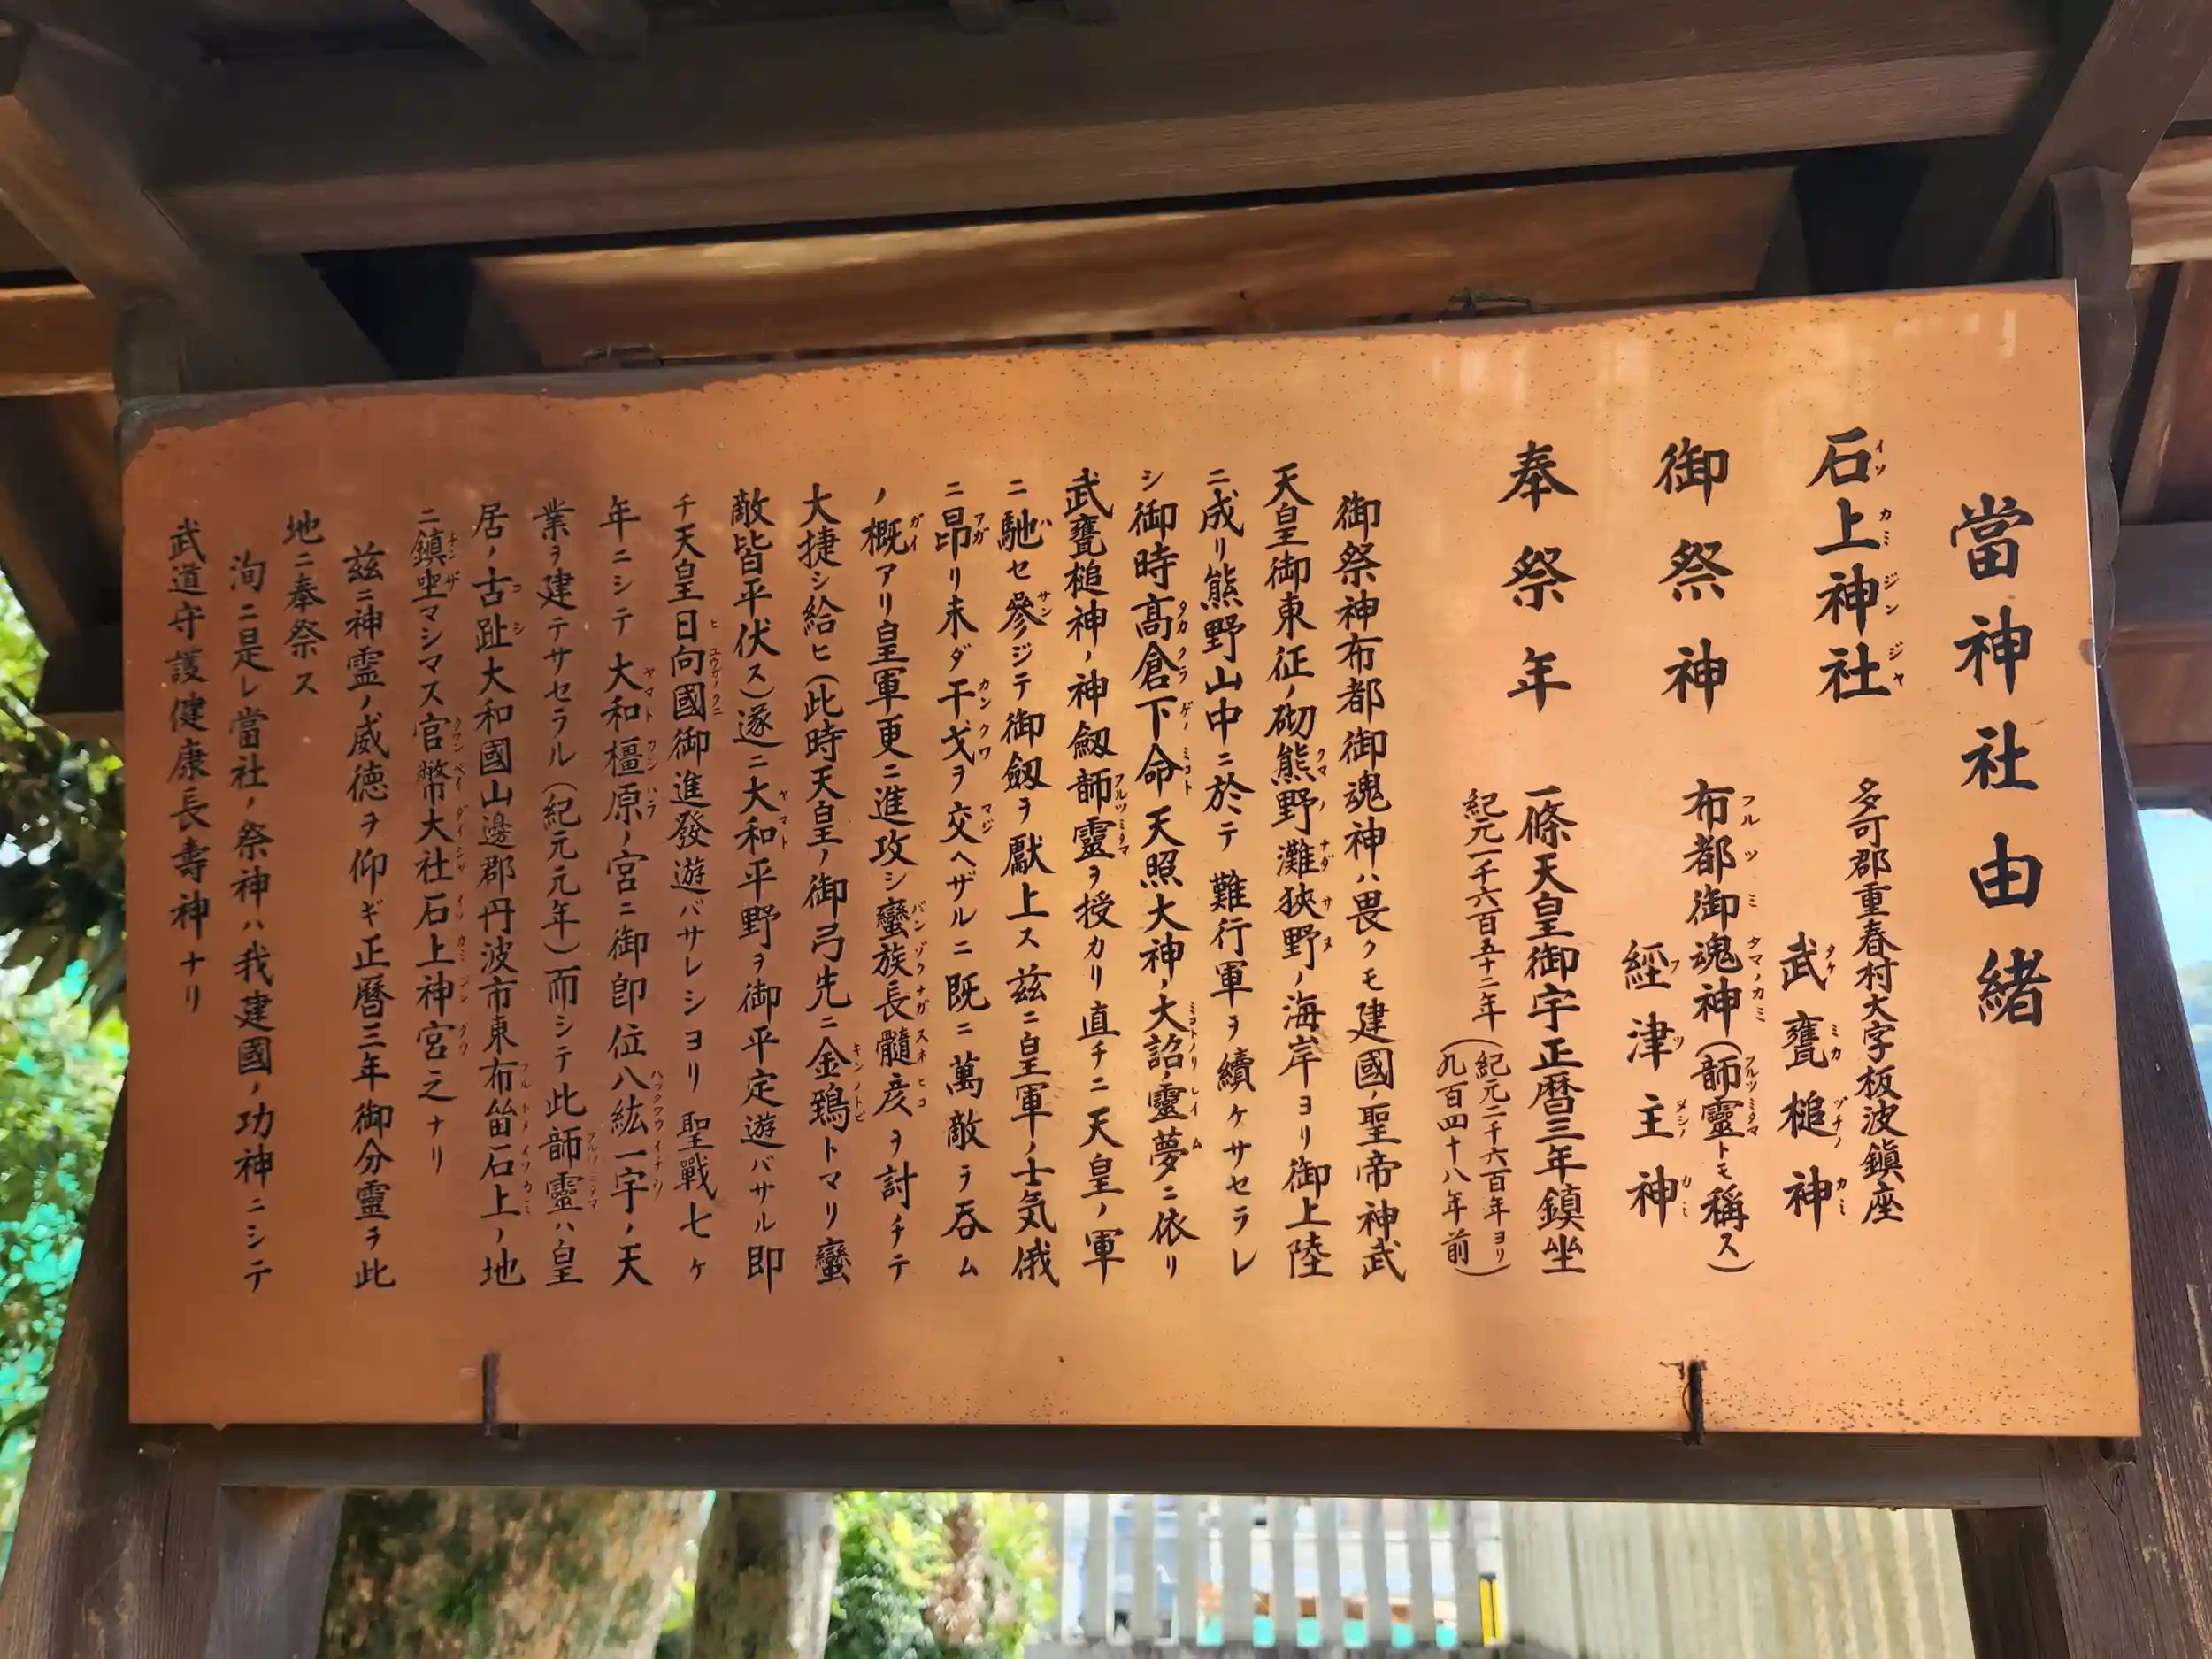 當神社由緒
石上神社 多可郡重春村大字板波鎮座
武甕槌神
御祭神 布都御魂神(韴靈トモ稱ス)
經津主神
奉祭年 一條天皇御宇正曆三年鎮坐
紀元一千六百五十二年(紀元二千六百年ヨリ九百四十八年前)
御祭神布都御魂神ハ畏クモ建國ノ聖帝神武
天皇御東征ノ砌熊野灘狹野ノ海岸ヨリ御上陸
ニ成リ熊野山中ニ於テ難行軍ヲ續ケサセラレ
シ御時髙倉下命天照大神ノ大詔ノ靈夢ニ依リ
武甕槌神ノ神劔韴靈ヲ授カリ直チニ天皇ノ軍
ニ馳セ參ジテ御劔ヲ獻上ス茲ニ皇軍ノ士気俄
ニ昂リ未ダ干戈ヲ交ヘザルニ既ニ萬敵ヲ吞ム
ノ概アリ皇軍更ニ進攻シ蠻族長髓彦ヲ討チテ
大捷シ給ヒ(此時天皇ノ御弓先ニ金鵄トマリ蠻
敵皆平伏ス)遂ニ大和平野ヲ御平定遊バサル即
チ天皇日向國御進發遊バサレシヨリ聖戰七ヶ
年ニシテ大和橿原ノ宮ニ御卽位八紘一宇ノ天
業ヲ建テサセラル(紀元元年)而シテ此韴靈ハ皇
居ノ古趾大和國山邊郡丹波市東布留石上ノ地
ニ鎮坐マシマス官幣大社石上神宮之ナリ
茲ニ神霊ノ威徳ヲ仰ギ正曆三年御分靈ヲ此
地ニ奉祭ス
洵ニ是レ當社ノ祭神ハ我建國ノ功神ニシテ
武道守護健康長壽神ナリ